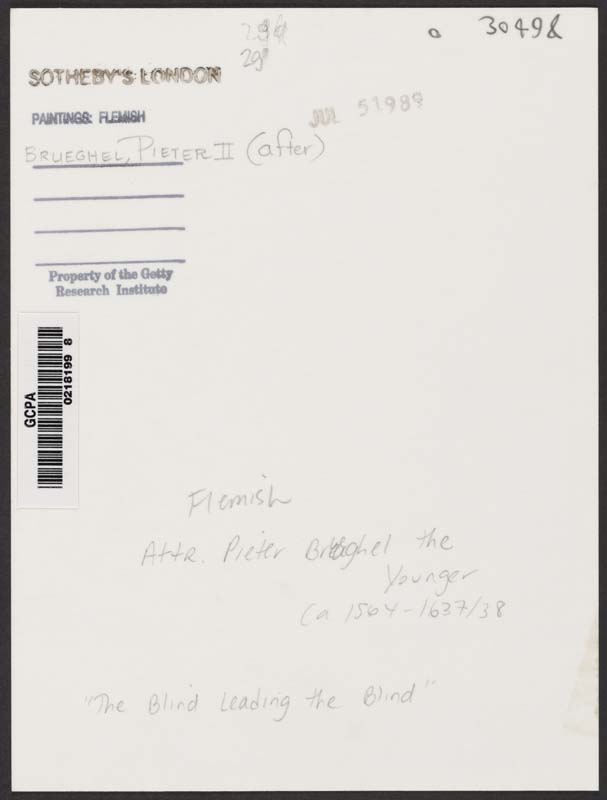 29
30498
SOTHEBY'S LONDON
PAINTINGS: FLEMISH
JUL 5 1989
BRUEGHEL, PIETER II (after)
Property of the Getty
Research Institute
GCPA
0218199 8
Flemish
Attr. Pieter Brueghel the
Younger
Ca 1564-1637/38
"The Blind Leading the Blind"